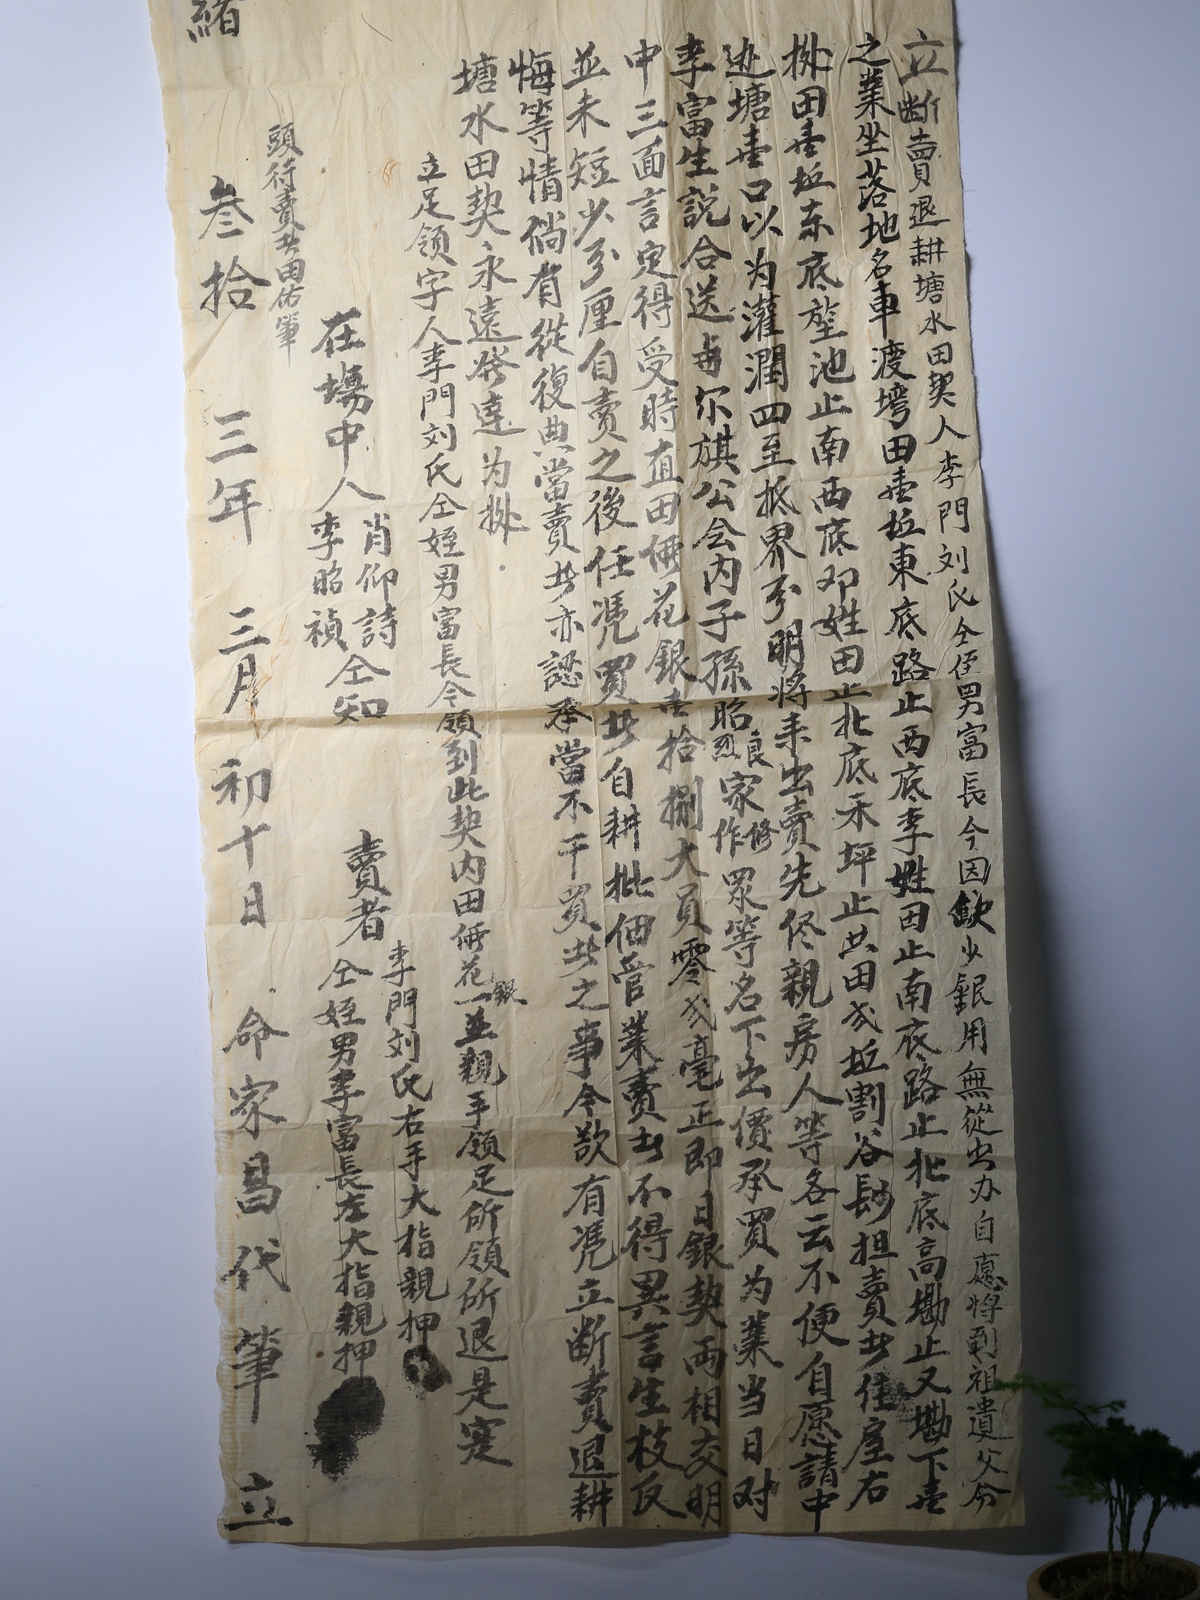 立断賣退耕塘水田契人李門刘氏仝侄男富長今因缺少銀用無從出办自愿将到祖遺父分
之業坐落地名車渡塆田壹坵東底路止西底李姓田止南底路止北底高墈止又墈下壹
掛田壹坵东底塋池止南西底邓姓田止北底禾坪止共田弍坵割谷担賣者住屋右
边塘壹口以为灌潤四至抵界分明将来出賣先侭親房人等各云不便自愿請中
李富生説合送与尔旗公会内子孫昭良烈家修作眾等名下出價承買为業当日对
中三面言定得受時值田價花銀壹拾捌大員零弍毫正即日銀契両相交明
並未短少分厘自賣之後任凴買者自耕批佃管業賣者不得異言生枝反
悔等情倘有從復典當賣者亦認承當不干買者之事今欲有凴立断賣退耕
塘水田契永遠發達为掛
立足領字人李門刘氏仝姪男富長今領到此契内田價花銀一並親手領足所領所退是寔
在塲中人肖仰詩李昭禎仝知
賣者李門刘氏右手大指親押
仝姪男李富長左大指親押
頭行賣者田佑筆
緒 叁拾三年三月初十日命家昌代筆立